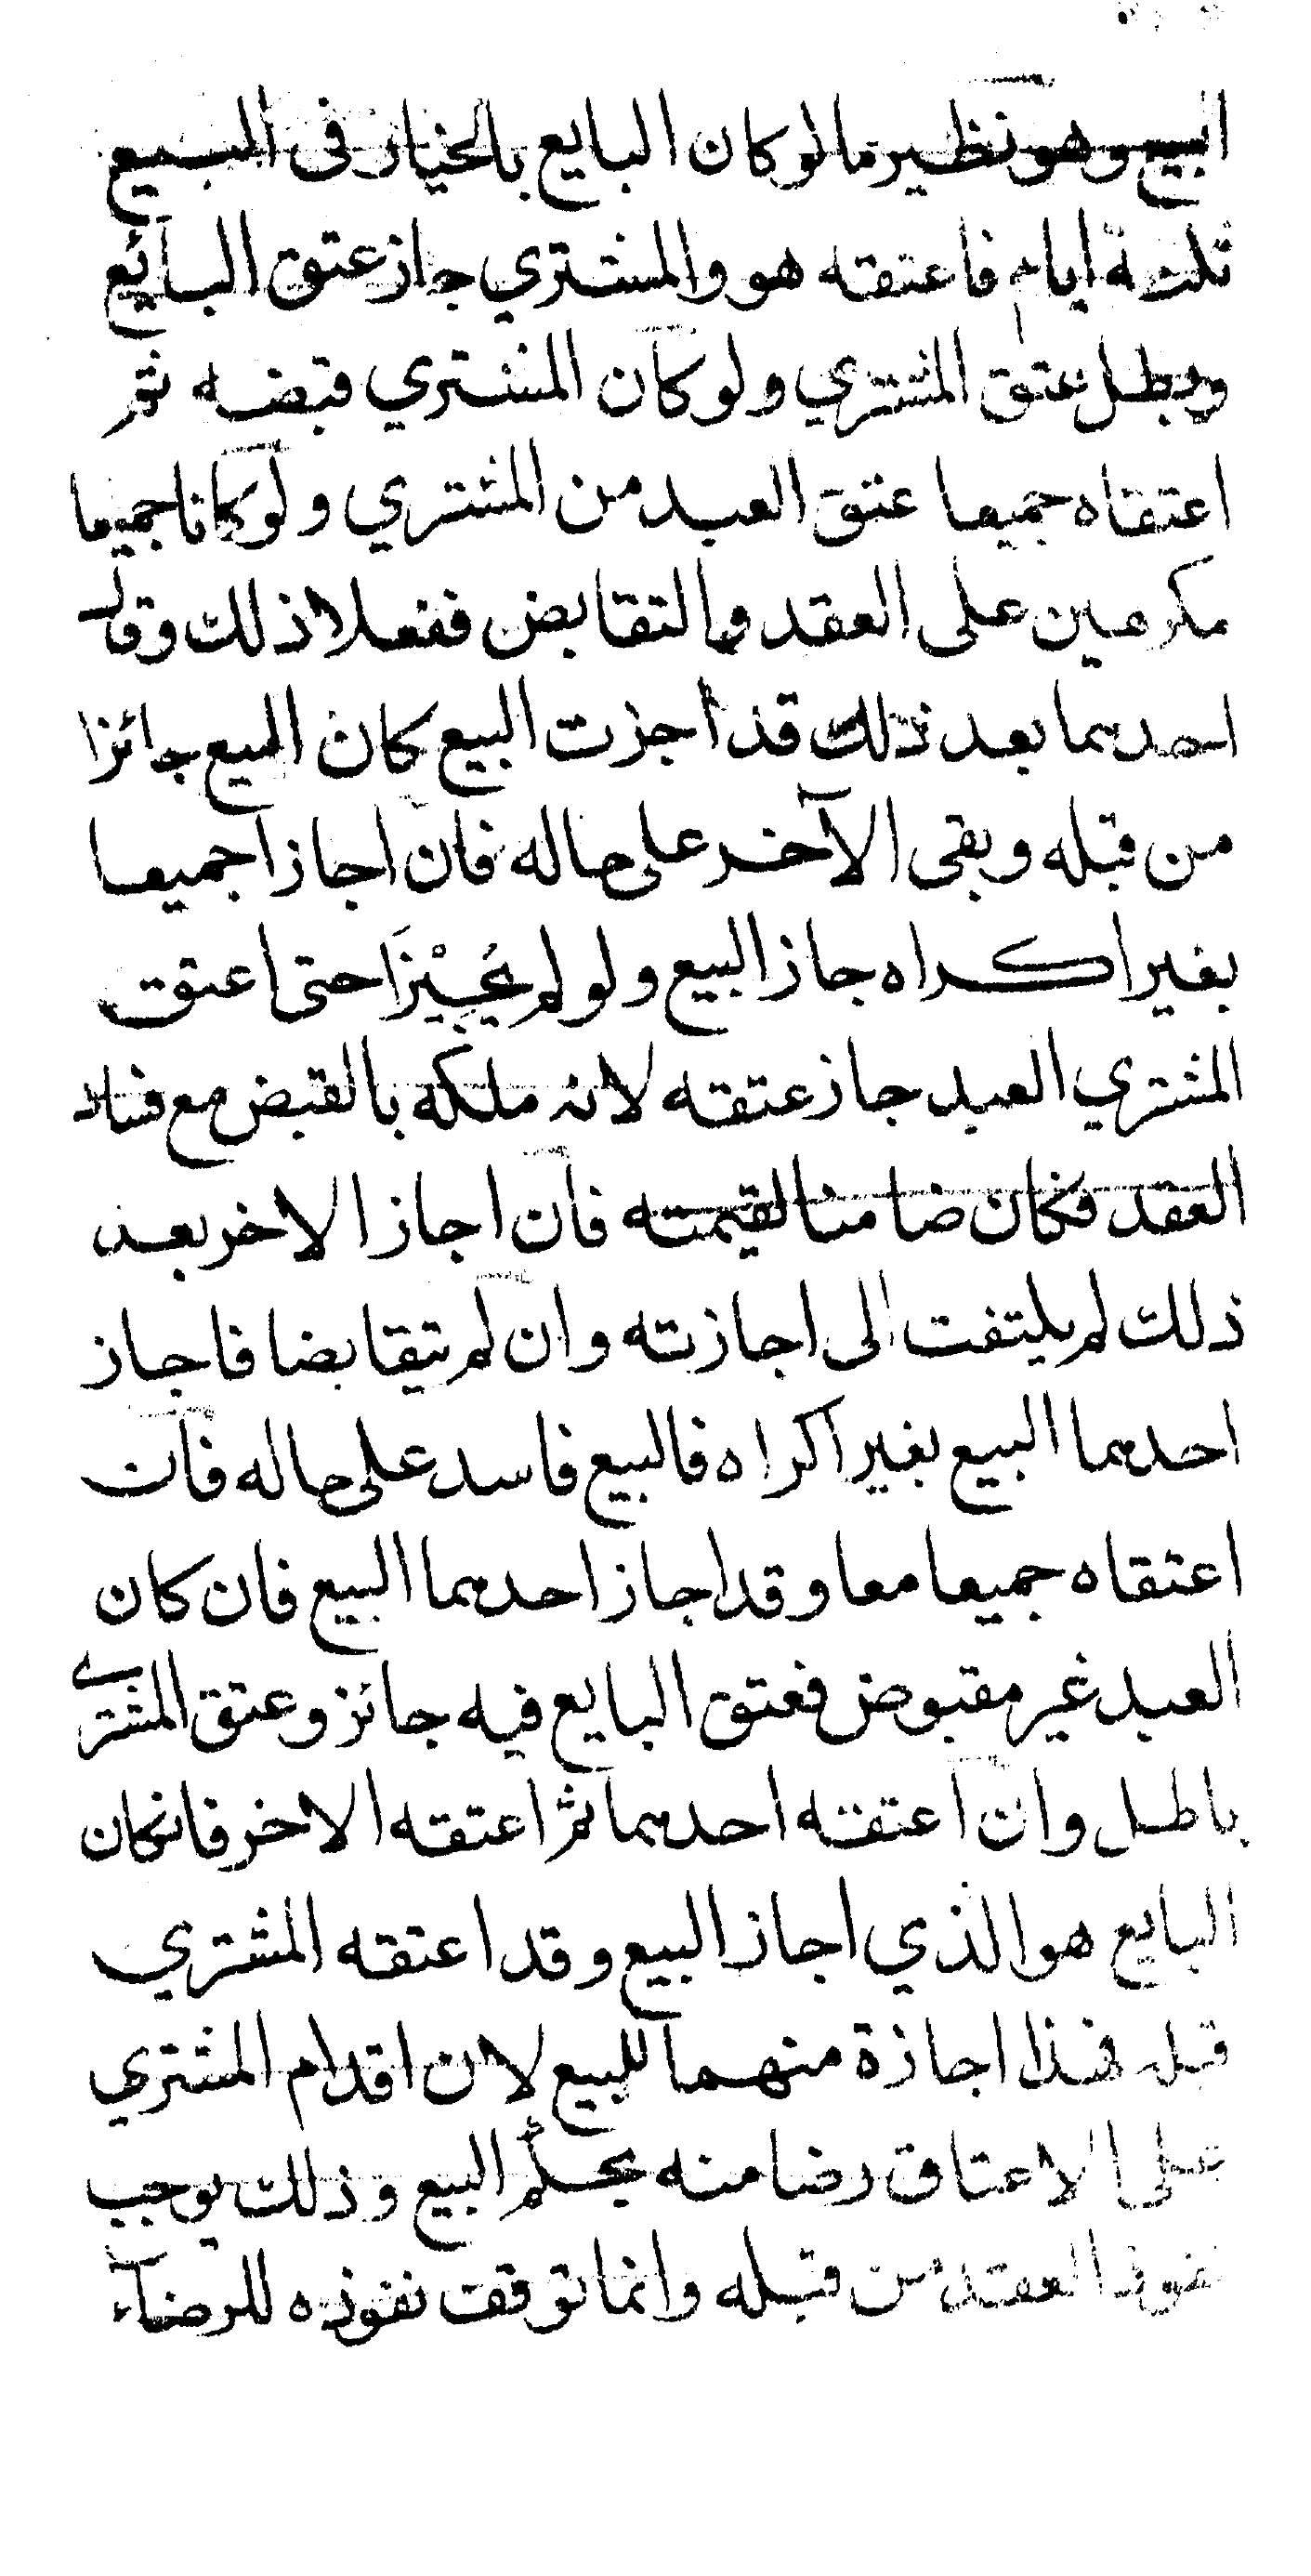 البيع وهو نظير ما لو كان البايع بالخيار في البيع
ثلثة ايام فاعتقه هو والمشتري جاز عتق البائع
وبطل عتق المشتري ولو كان المشتري قبضه ثم
اعتقاه جميعا عتق العبد من المشتري ولو كانا جميعا
مكرهين على العقد والتقابض ففعلا ذلك وقال
احدهما بعد ذلك قد اجزت البيع كان البيع جائزا
من قبله وبقى الآخر على حاله فان اجازا جميعا
بغير اكراه جاز البيع ولو لم يُجِيْزَا حتى اعتق
المشتري العبد جاز عتقه لانه ملكه بالقبض مع فساد
العقد فكان ضامنا لقيمته فان اجاز الاخر بعد
ذلك لم يلتفت الى اجازته وان لم يتقابضا فاجاز
احدهما البيع بغير اكراه فالبيع فاسد على حاله فان
اعتقاه جميعا معا وقد اجاز احدهما البيع فان كان
العبد غير مقبوض فعتق البايع فيه جائز وعتق المشتري
باطل وان اعتقه احدهما ثم اعتقه الاخر فان كان
البايع هو الذي اجاز البيع وقد اعتقه المشتري
قبله فهذا اجازة منهما للبيع لان اقدام المشتري
على الاعتاق رضا منه بحكم البيع وذلك يوجب
نفوذ العقد من قبله وانما توقف نفوذه للرضاء